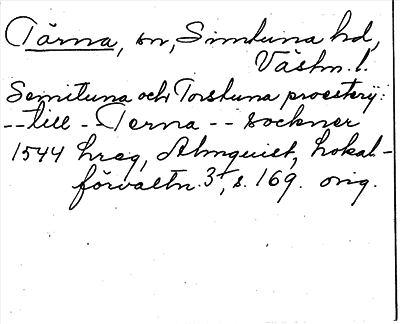 Tärna, sn, Simtuna hd,
Västm. l.
Semituna och Torstuna prosterij:
-- till - Terna -- sockner
1544 hreg, Almquist, Lokal-
förvaltn. 3, s. 169. orig.